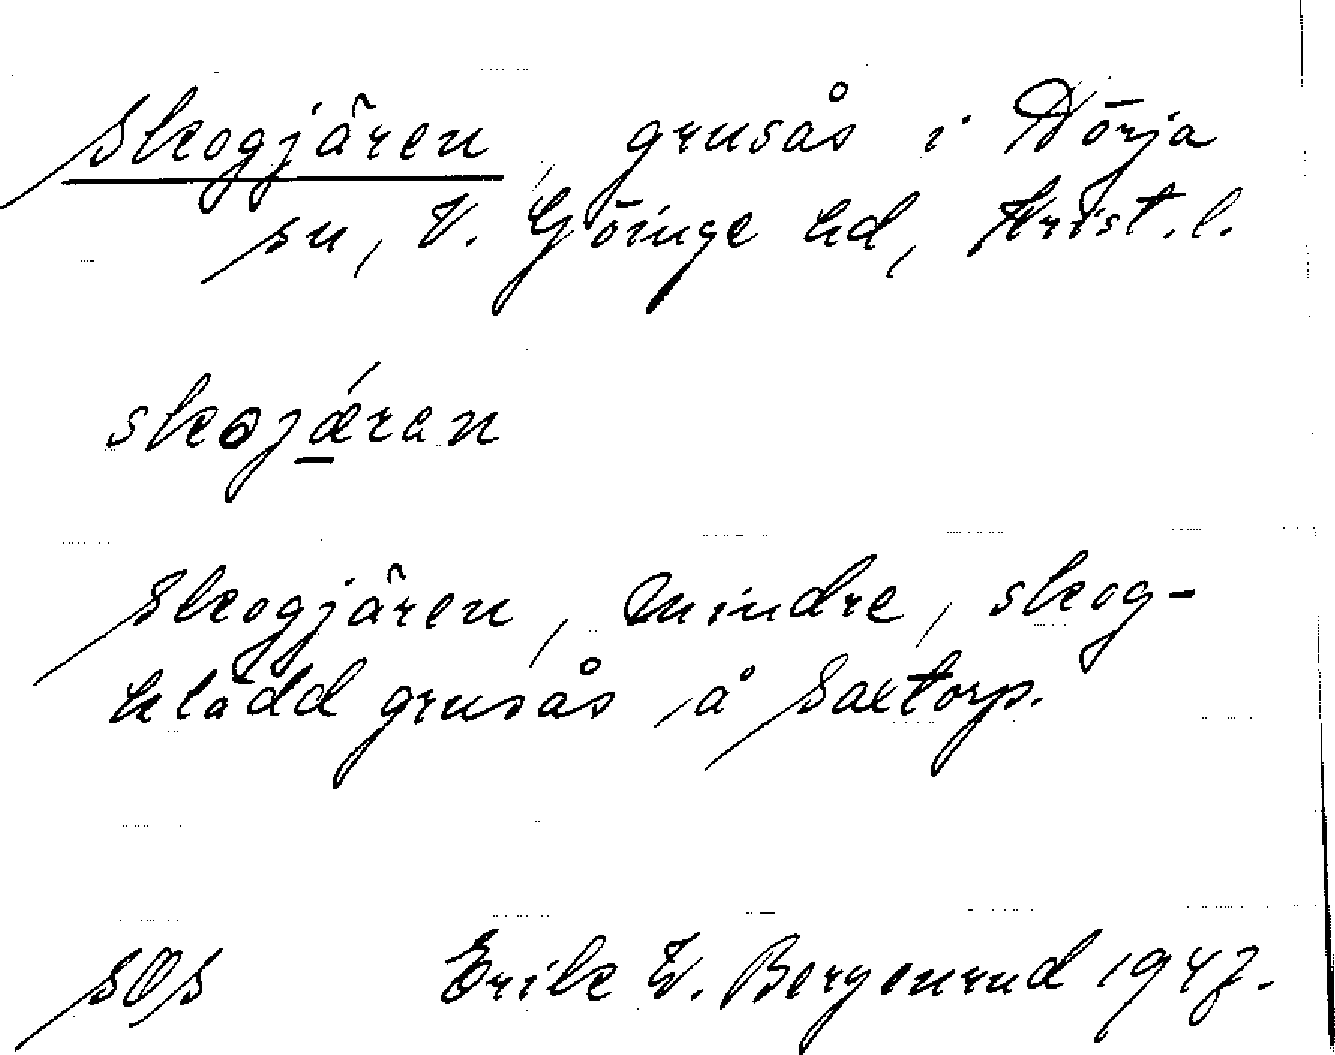 Skogjären, grusås i Dörja
sn, V. Göinge hd, Krist. l.
skojǽran
Skogjären, mindre, skog-
klädd grusås å Saxtorp.
Erik W. Bergenrud 1947.